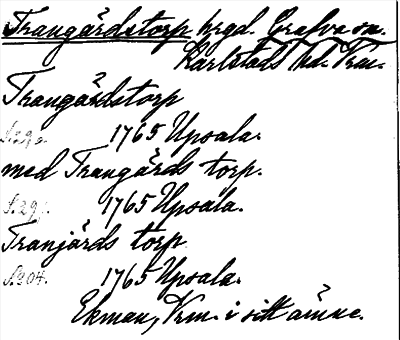 Trangärdstorp hrgd. Grafva sn.
Karlstads hd. Vrm.
Trangärdstorp
1765 Upsala.
med Trangärds torp.
S. 29. 1765 Upsala.
Tranjärds torp
S. 204. 1765 Upsala.
Ekman, Vrm. i sitt ämne.